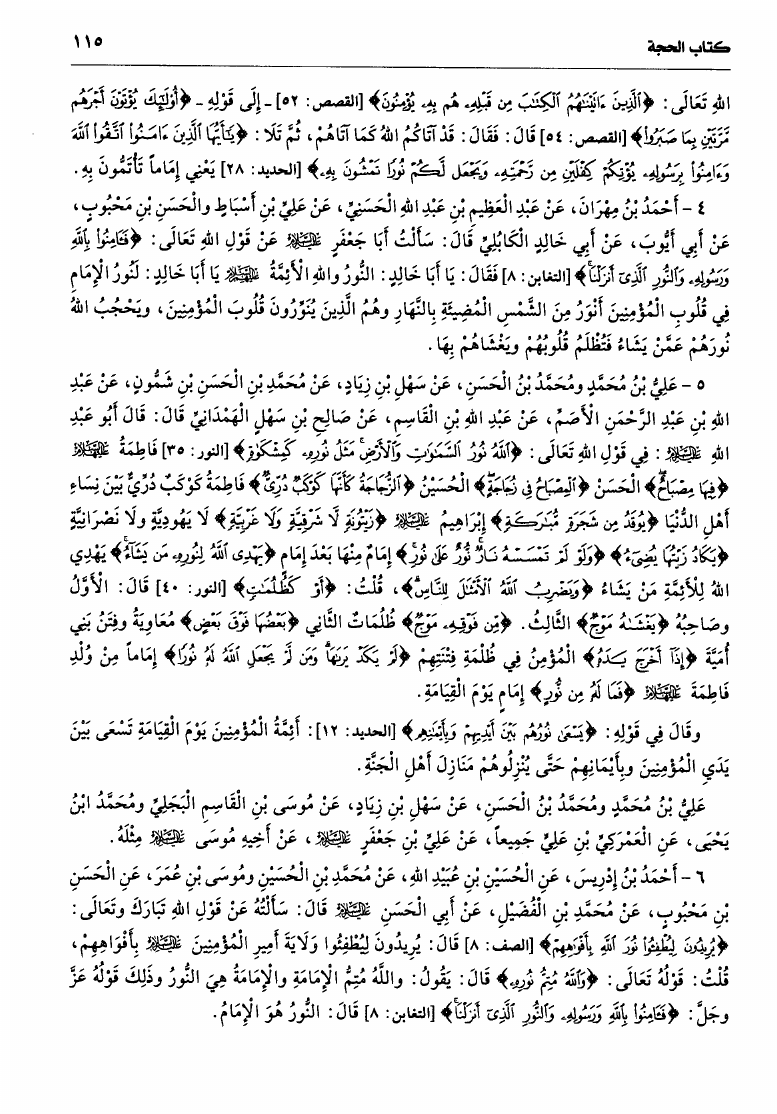 كتاب الحجة ١١٥
اللهِ تَعَالَى: ﴿ٱلَّذِينَ ءَاتَيْنَٰهُمُ ٱلْكِتَٰبَ مِن قَبْلِهِۦ هُم بِهِۦ يُؤْمِنُونَ﴾ [القصص: ٥٢] ـ إِلَى قَوْلِهِ ـ ﴿أُوْلَٰٓئِكَ يُؤْتَوْنَ أَجْرَهُم
مَّرَّتَيْنِ بِمَا صَبَرُواْ﴾ [القصص: ٥٤] قَالَ: فَقَالَ: قَدْ آتَاكُمُ اللهُ كَمَا آتَاهُمْ، ثُمَّ تَلَا: ﴿يَٰٓأَيُّهَا ٱلَّذِينَ ءَامَنُواْ ٱتَّقُواْ ٱللَّهَ
وَءَامِنُواْ بِرَسُولِهِۦ يُؤْتِكُمْ كِفْلَيْنِ مِن رَّحْمَتِهِۦ وَيَجْعَل لَّكُمْ نُورًا تَمْشُونَ بِهِۦ﴾ [الحديد: ٢٨] يَعْنِي إِمَاماً تَأْتَمُّونَ بِهِ.
٤ - أَحْمَدُ بْنُ مِهْرَانَ، عَنْ عَبْدِ الْعَظِيمِ بْنِ عَبْدِ اللهِ الْحَسَنِيِّ، عَنْ عَلِيِّ بْنِ أَسْبَاطٍ والْحَسَنِ بْنِ مَحْبُوبٍ،
عَنْ أَبِي أَيُّوبَ، عَنْ أَبِي خَالِدٍ الْكَابُلِيِّ قَالَ: سَأَلْتُ أَبَا جَعْفَرٍ عَلَيْهِ السَّلَام عَنْ قَوْلِ اللهِ تَعَالَى: ﴿فَـَٔامِنُواْ بِٱللَّهِ
وَرَسُولِهِۦ وَٱلنُّورِ ٱلَّذِىٓ أَنزَلْنَا﴾ [التغابن: ٨] فَقَالَ: يَا أَبَا خَالِدٍ: النُّورُ واللهِ الْأَئِمَّةُ عَلَيْهِم السَّلَام يَا أَبَا خَالِدٍ: لَنُورُ الْإِمَامِ
فِي قُلُوبِ الْمُؤْمِنِينَ أَنْوَرُ مِنَ الشَّمْسِ الْمُضِيئَةِ بِالنَّهَارِ وهُمُ الَّذِينَ يُنَوِّرُونَ قُلُوبَ الْمُؤْمِنِينَ، ويَحْجُبُ اللهُ
نُورَهُمْ عَمَّنْ يَشَاءُ فَتُظْلَمُ قُلُوبُهُمْ ويَغْشَاهُمْ بِهَا.
٥ - عَلِيُّ بْنُ مُحَمَّدٍ ومُحَمَّدُ بْنُ الْحَسَنِ، عَنْ سَهْلِ بْنِ زِيَادٍ، عَنْ مُحَمَّدِ بْنِ الْحَسَنِ بْنِ شَمُّونٍ، عَنْ عَبْدِ
اللهِ بْنِ عَبْدِ الرَّحْمَنِ الْأَصَمِّ، عَنْ عَبْدِ اللهِ بْنِ الْقَاسِمِ، عَنْ صَالِحِ بْنِ سَهْلٍ الْهَمْدَانِيِّ قَالَ: قَالَ أَبُو عَبْدِ
اللهِ عَلَيْهِ السَّلَام: فِي قَوْلِ اللهِ تَعَالَى: ﴿ٱللَّهُ نُورُ ٱلسَّمَٰوَٰتِ وَٱلْأَرْضِ مَثَلُ نُورِهِۦ كَمِشْكَوٰةٍ﴾ [النور: ٣٥] فَاطِمَةُ عَلَيْهَا السَّلَام
﴿فِيهَا مِصْبَاحٌ﴾ الْحَسَنُ ﴿ٱلْمِصْبَاحُ فِى زُجَاجَةٍ﴾ الْحُسَيْنُ ﴿ٱلزُّجَاجَةُ كَأَنَّهَا كَوْكَبٌ دُرِّىٌّ﴾ فَاطِمَةُ كَوْكَبٌ دُرِّيٌّ بَيْنَ نِسَاءِ
أَهْلِ الدُّنْيَا ﴿يُوقَدُ مِن شَجَرَةٍ مُّبَٰرَكَةٍ﴾ إِبْرَاهِيمُ عَلَيْهِ السَّلَام ﴿زَيْتُونَةٍ لَّا شَرْقِيَّةٍ وَلَا غَرْبِيَّةٍ﴾ لَا يَهُودِيَّةٍ ولَا نَصْرَانِيَّةٍ
﴿يَكَادُ زَيْتُهَا يُضِىٓءُ﴾ ﴿وَلَوْ لَمْ تَمْسَسْهُ نَارٌ نُّورٌ عَلَىٰ نُورٍ﴾ إِمَامٌ مِنْهَا بَعْدَ إِمَامٍ ﴿يَهْدِى ٱللَّهُ لِنُورِهِۦ مَن يَشَآءُ﴾ يَهْدِي
اللهُ لِلْأَئِمَّةِ مَنْ يَشَاءُ ﴿وَيَضْرِبُ ٱللَّهُ ٱلْأَمْثَٰلَ لِلنَّاسِ﴾، قُلْتُ: ﴿أَوْ كَظُلُمَٰتٍ﴾ [النور: ٤٠] قَالَ: الْأَوَّلُ
وصَاحِبُهُ ﴿يَغْشَىٰهُ مَوْجٌ﴾ الثَّالِثُ. ﴿مِّن فَوْقِهِۦ مَوْجٌ﴾ ظُلُمَاتٌ الثَّانِي ﴿بَعْضُهَا فَوْقَ بَعْضٍ﴾ مُعَاوِيَةُ وفِتَنُ بَنِي
أُمَيَّةَ ﴿إِذَآ أَخْرَجَ يَدَهُۥ﴾ الْمُؤْمِنُ فِي ظُلْمَةِ فِتْنَتِهِمْ ﴿لَمْ يَكَدْ يَرَىٰهَا وَمَن لَّمْ يَجْعَلِ ٱللَّهُ لَهُۥ نُورًا﴾ إِمَاماً مِنْ وُلْدِ
فَاطِمَةَ عَلَيْهَا السَّلَام ﴿فَمَا لَهُۥ مِن نُّورٍ﴾ إِمَامٍ يَوْمَ الْقِيَامَةِ.
وقَالَ فِي قَوْلِهِ: ﴿يَسْعَىٰ نُورُهُم بَيْنَ أَيْدِيهِمْ وَبِأَيْمَٰنِهِم﴾ [الحديد: ١٢]: أَئِمَّةُ الْمُؤْمِنِينَ يَوْمَ الْقِيَامَةِ تَسْعَى بَيْنَ
يَدَيِ الْمُؤْمِنِينَ وبِأَيْمَانِهِمْ حَتَّى يُنْزِلُوهُمْ مَنَازِلَ أَهْلِ الْجَنَّةِ.
عَلِيُّ بْنُ مُحَمَّدٍ ومُحَمَّدُ بْنُ الْحَسَنِ، عَنْ سَهْلِ بْنِ زِيَادٍ، عَنْ مُوسَى بْنِ الْقَاسِمِ الْبَجَلِيِّ ومُحَمَّدُ ابْنُ
يَحْيَى، عَنِ الْعَمْرَكِيِّ بْنِ عَلِيٍّ جَمِيعاً، عَنْ عَلِيِّ بْنِ جَعْفَرٍ عَلَيْهِ السَّلَام، عَنْ أَخِيهِ مُوسَى عَلَيْهِ السَّلَام مِثْلَهُ.
٦ - أَحْمَدُ بْنُ إِدْرِيسَ، عَنِ الْحُسَيْنِ بْنِ عُبَيْدِ اللهِ، عَنْ مُحَمَّدِ بْنِ الْحُسَيْنِ ومُوسَى بْنِ عُمَرَ، عَنِ الْحَسَنِ
بْنِ مَحْبُوبٍ، عَنْ مُحَمَّدِ بْنِ الْفُضَيْلِ، عَنْ أَبِي الْحَسَنِ عَلَيْهِ السَّلَام قَالَ: سَأَلْتُهُ عَنْ قَوْلِ اللهِ تَبَارَكَ وتَعَالَى:
﴿يُرِيدُونَ لِيُطْفِـُٔواْ نُورَ ٱللَّهِ بِأَفْوَٰهِهِمْ﴾ [الصف: ٨] قَالَ: يُرِيدُونَ لِيُطْفِئُوا وَلَايَةَ أَمِيرِ الْمُؤْمِنِينَ عَلَيْهِ السَّلَام بِأَفْوَاهِهِمْ،
قُلْتُ: قَوْلُهُ تَعَالَى: ﴿وَٱللَّهُ مُتِمُّ نُورِهِۦ﴾ قَالَ: يَقُولُ: واللَّهُ مُتِمُّ الْإِمَامَةِ والْإِمَامَةُ هِيَ النُّورُ وذَلِكَ قَوْلُهُ عَزَّ
وجَلَّ: ﴿فَـَٔامِنُواْ بِٱللَّهِ وَرَسُولِهِۦ وَٱلنُّورِ ٱلَّذِىٓ أَنزَلْنَا﴾ [التغابن: ٨] قَالَ: النُّورُ هُوَ الْإِمَامُ.